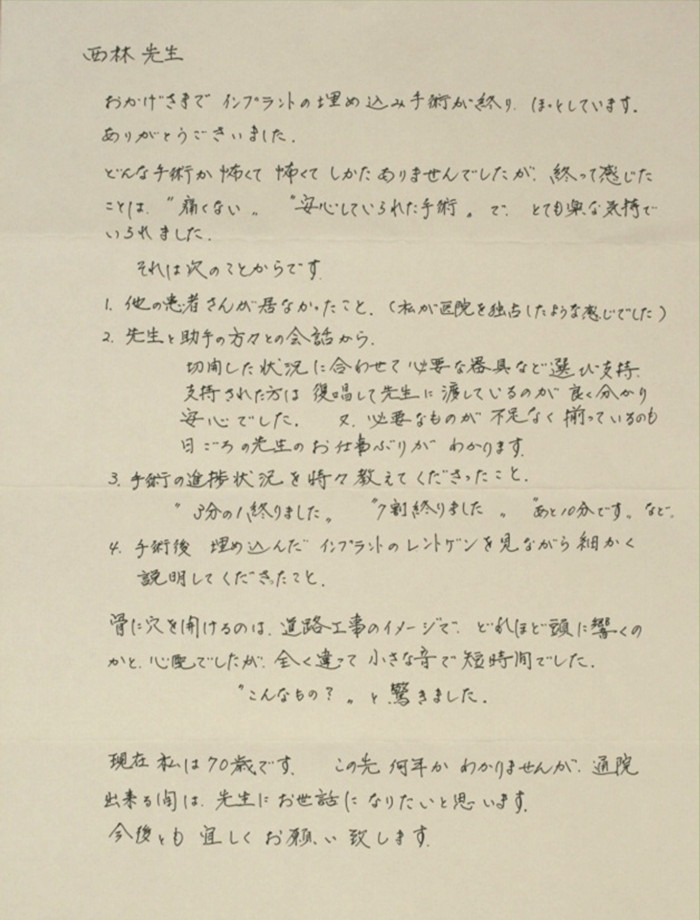 西林先生
おかげさまで インプラントの埋め込み手術が終り、ほっとしています。
ありがとうございました。
どんな手術か 怖くて 怖くて しかたありませんでしたが、終って感じた
ことは、〝痛くない〟 〝安心していられた手術〟で、とても楽な気持で
いられました。
それは次のことからです。
1. 他の患者さんが居なかったこと、(私が医院を独占したような感じでした)
2. 先生と助手の方々との会話から、
切開した状況に合わせて 必要な器具など選び支持、
支持された方は 復唱して先生に渡しているのが 良く分かり
安心でした。 又、必要なものが 不足なく揃っているのも
日ごろの先生のお仕事ぶりが わかります。
3. 手術の進捗状況を時々教えてくださったこと、
〝3分の1終りました〟 〝7割終りました〟 〝あと10分です〟など。
4. 手術後 埋め込んだ インプラントのレントゲンを見ながら 細かく
説明してくださったこと、
骨に穴を開けるのは、道路工事のイメージで、どれほど頭に響くの
かと、心配でしたが、全く違って 小さな音で 短時間でした。
〝こんなもの?〟と 驚きました。
現在 私は70歳です。 この先 何年か わかりませんが、通院
出来る間は、先生に お世話に なりたいと思います。
今後とも 宜しく お願い 致します。